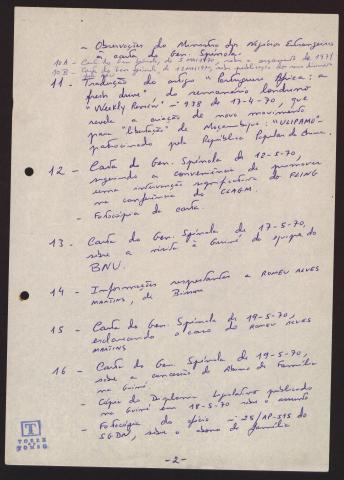 - Observações do Ministro dos Negócios Estrangeiros
à carta do Gen. Spínola.
10A - Carta do Gen. Spínola, de 5 MAI 1970, sobre o orçamento de 1971
10B - Carta do Gen. Spínola, de 12 MAI 1970, sobre publicação dos
11 - Tradução do artigo "Portuguese Africa: a
fresh drive" do semanário londrino
"Weekly Review" - 178 de 17-4-70, que
revela a criação de novo movimento
para "libertação" de Moçambique: "ULIPAMO"
patrocinado pela República Popular da China.
12 - Carta do Gen. Spínola de 12-5-70,
sugerindo a conveniência de promover
uma intervenção significativa do
na conferência do
- Fotocópia da carta.
13 - Carta do Gen. Spínola de 17-5-70,
sobre a visita à Guiné da equipa do
BNU.
14 - Informações respeitantes a ROMEU ALVES
MARTINS, de Bissau
15 - Carta do Gen. Spínola de 19-5-70,
esclarecendo o caso do ROMEU ALVES
MARTINS
16 - Carta do Gen. Spínola de 19-5-70,
sobre a concessão do Abono de Família
na Guiné
- Cópia do Diploma Legislativo publicado
na Guiné em 18-5-70 sobre o assunto
- Fotocópia do ofício nº 25/AP-515 do
SGDN, sobre o abono de família
T
TORRE
TOMBO
-2-